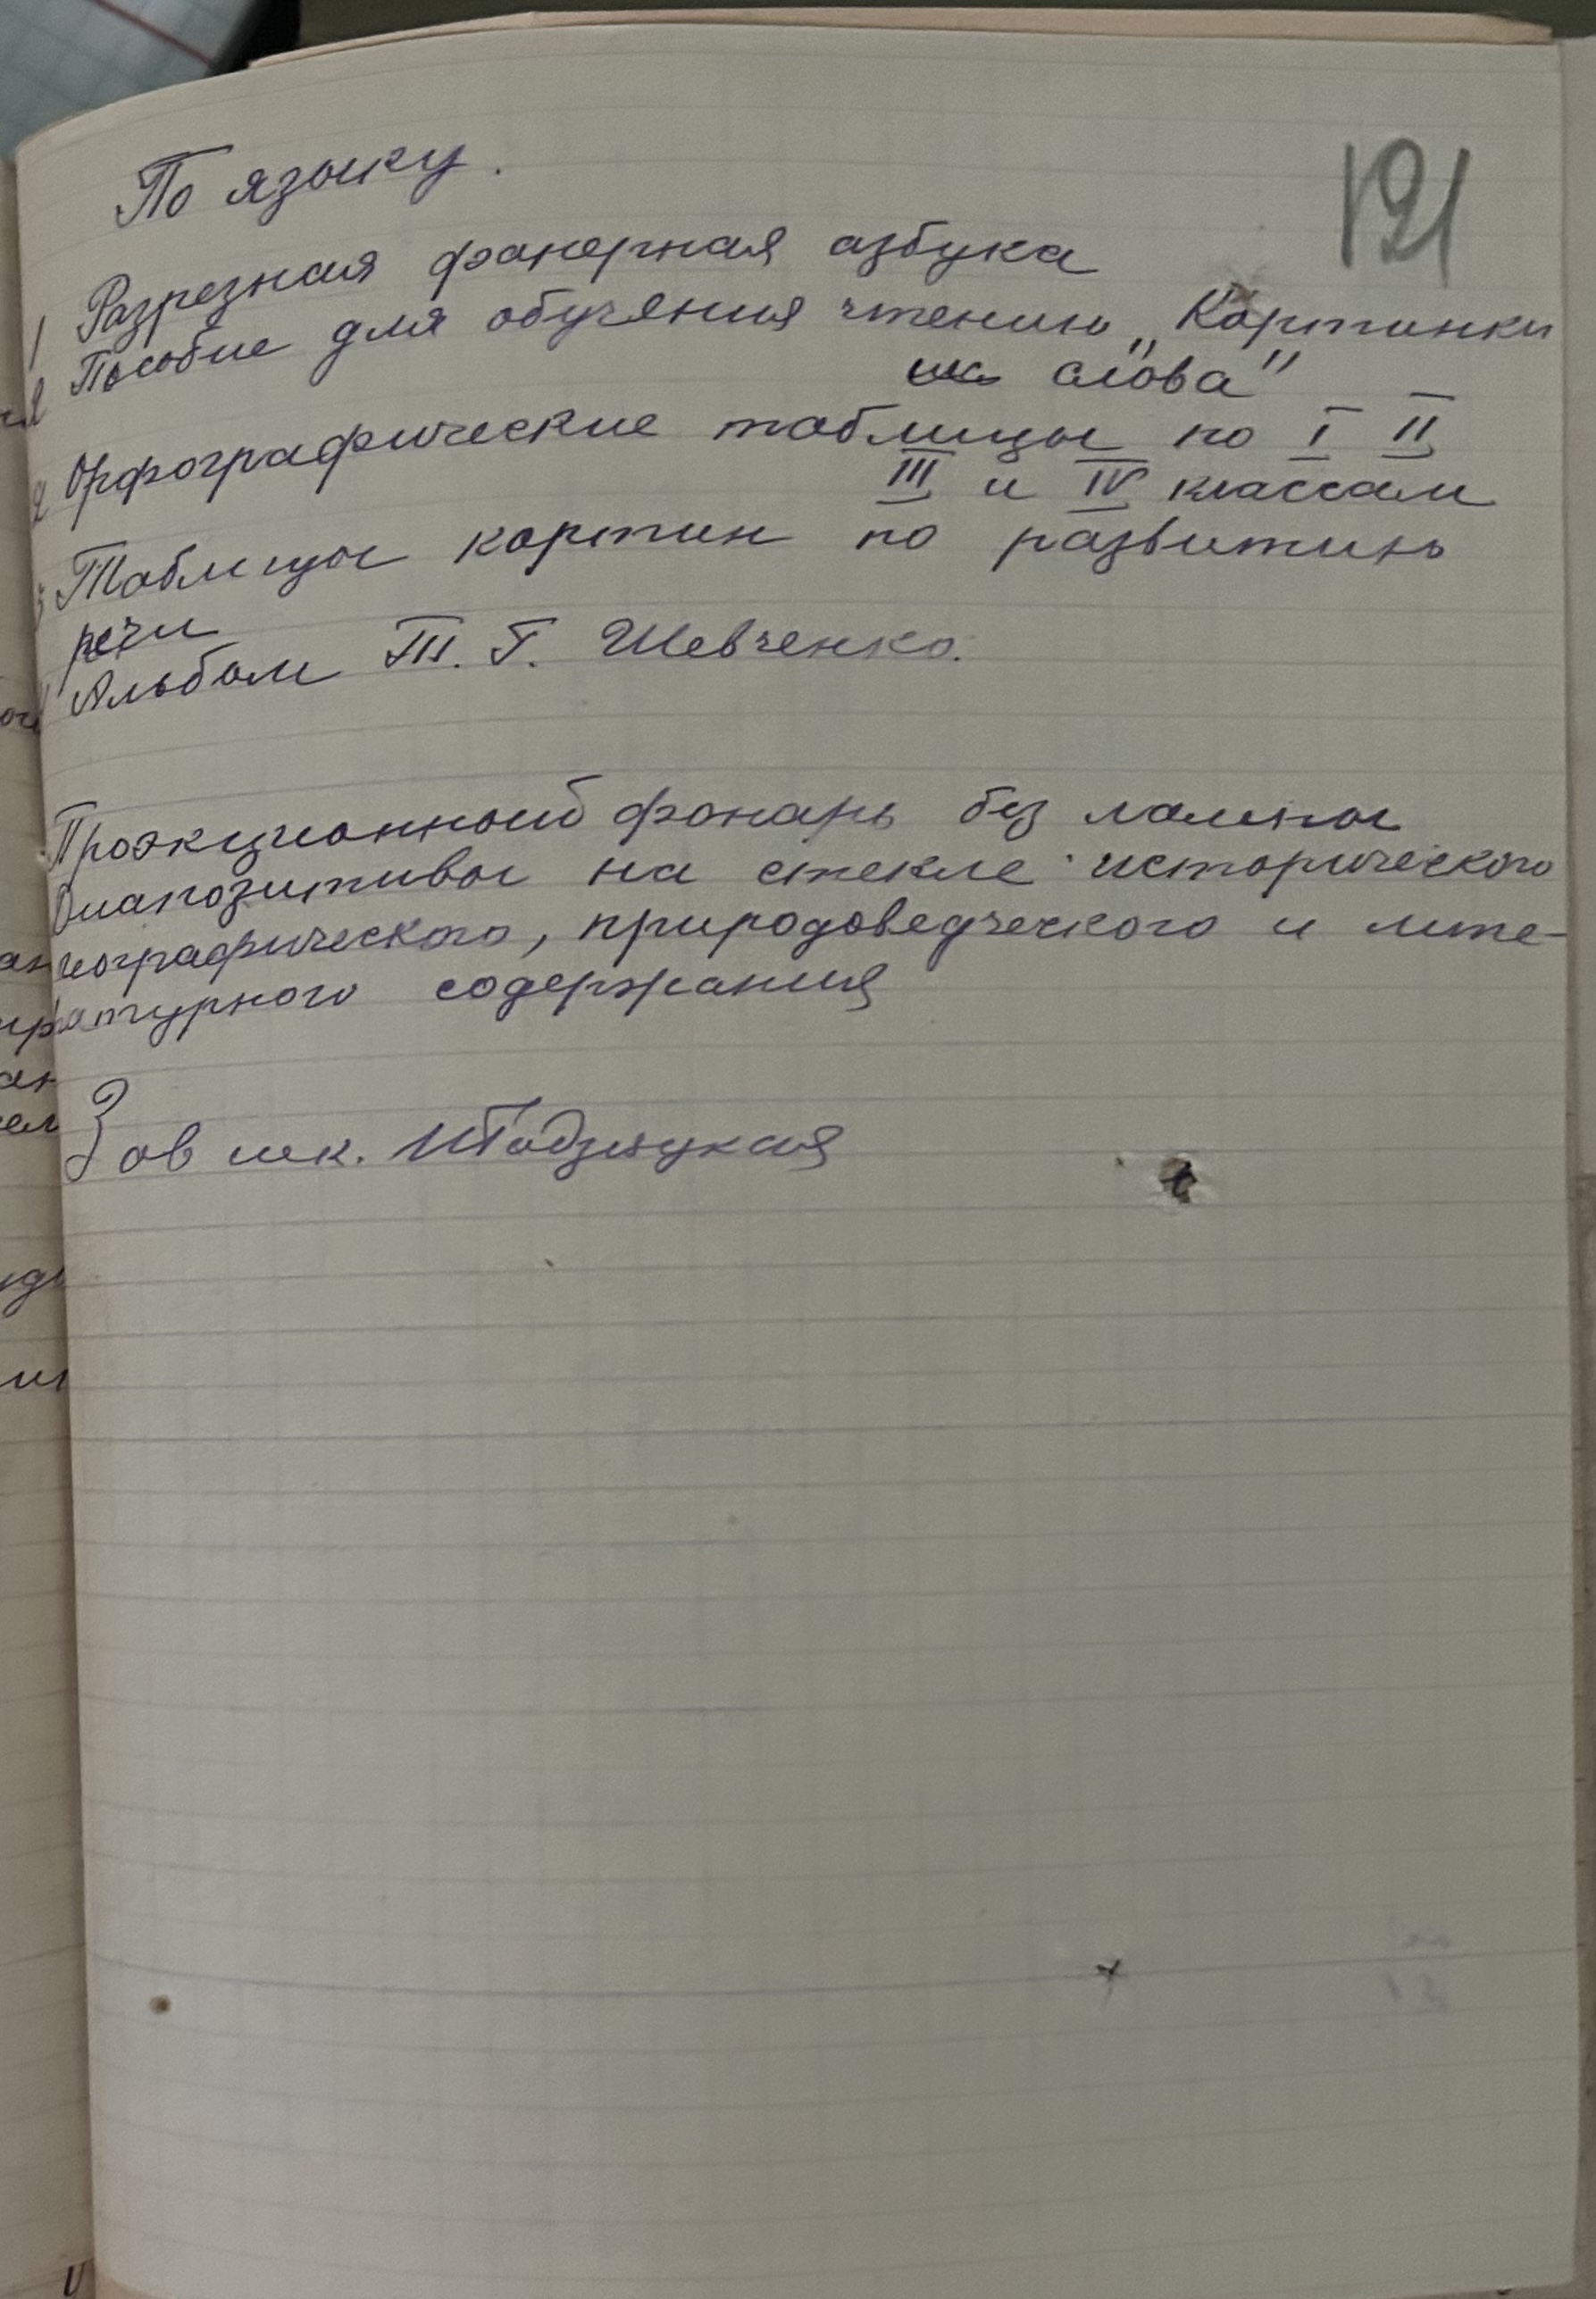 121
По языку.
1 Разрезная фанерная азбука
2 Пособие для обучения чтению „Картинки
и слова"
2 Орфографические таблицы по I II
III и IV классам
3 Таблицы картин по развитию
речи
Альбом Т. Г. Шевченко.
Проэкционный фонарь без лампы
Диапозитивы на стекле исторического
географического, природоведческого и лите-
ратурного содержания
Зав шк.